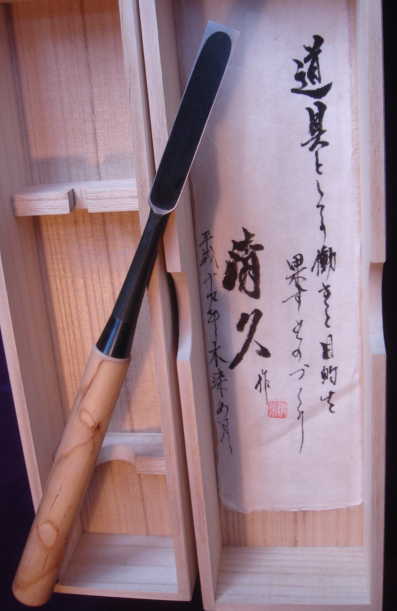 道具として働きと目的を
果すものづくり
清久
作
平成廿九年木染め月